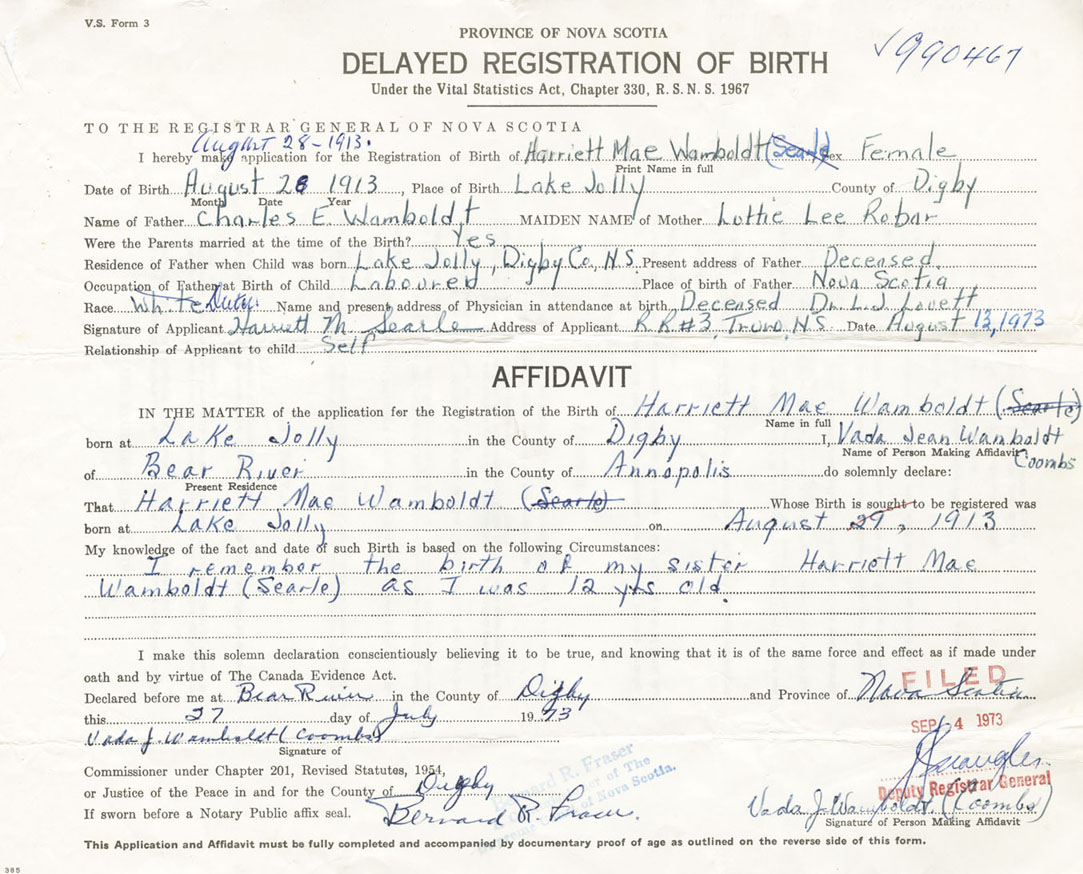 V.S. Form 3
PROVINCE OF NOVA SCOTIA
DELAYED REGISTRATION OF BIRTH
990467
Under the Vital Statistics Act, Chapter 330, R.S.N.S. 1967
TO THE REGISTRAR GENERAL OF NOVA SCOTIA
August 28-1913.
I hereby make application for the Registration of Birth of Harriett Mae Wamboldt (Searle) Sex Female
Print Name in full
Date of Birth August 28 1913, Place of Birth Lake Jolly County of Digby
Month Date Year
Name of Father Charles E. Wamboldt MAIDEN NAME of Mother Lottie Lee Robar
Were the Parents married at the time of the Birth? Yes
Residence of Father when Child was born Lake Jolly, Digby Co, N.S. Present address of Father Deceased.
Occupation of Father at Birth of Child Laboured Place of birth of Father Nova Scotia
Race White Name and present address of Physician in attendance at birth Deceased Dr. L.J. Lovett
Signature of Applicant Harriett M. Searle Address of Applicant R.R#3 Truro, N.S. Date August 13, 1973
Relationship of Applicant to child Self
AFFIDAVIT
IN THE MATTER of the application for the Registration of the Birth of Harriett Mae Wamboldt (Searle)
Name in full
born at Lake Jolly in the County of Digby I, Vada Jean Wamboldt
Name of Person Making Affidavit Coombs
of Bear River in the County of Annopolis do solemnly declare:
Present Residence
That Harriett Mae Wamboldt (Searle) Whose Birth is sought to be registered was
born at Lake Jolly on August 29, 1913
My knowledge of the fact and date of such Birth is based on the following Circumstances:
I remember the birth of my sister Harriett Mae
Wamboldt (Searle) as I was 12 yrs old.
I make this solemn declaration conscientiously believing it to be true, and knowing that it is of the same force and effect as if made under
oath and by virtue of The Canada Evidence Act.
FILED
Declared before me at Bear River in the County of Digby and Province of Nova Scotia
this 27 day of July 1973
SEP 4 1973
Vada J. Wamboldt (Coombs)
Signature of
Commissioner under Chapter 201, Revised Statutes, 1954,
Deputy Registrar General
or Justice of the Peace in and for the County of Digby
Bernard R. Fraser
of The
of Nova Scotia.
If sworn before a Notary Public affix seal. Bernard R. Fraser. Vada J. Wamboldt. (Coombs)
Signature of Person Making Affidavit
This Application and Affidavit must be fully completed and accompanied by documentary proof of age as outlined on the reverse side of this form.
385